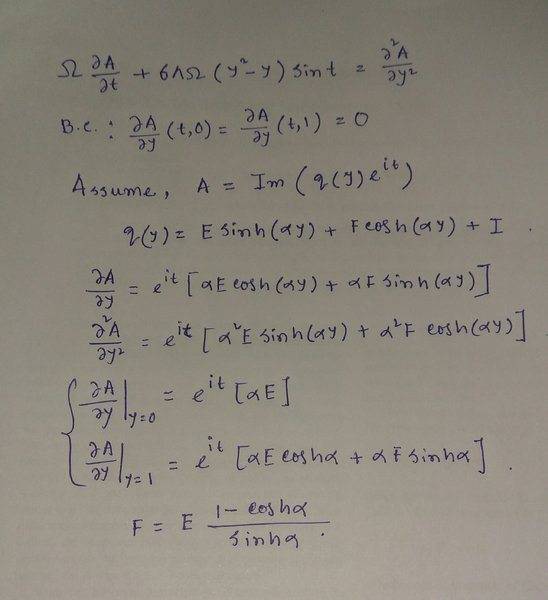 Ω ∂A/∂t + 6ΛΩ (y²-y) sint = ∂²A/∂y²
B.C. : ∂A/∂y (t,0) = ∂A/∂y (t,1) = 0
Assume, A = Im (q(y)e^{it})
q(y) = E sinh(αy) + F cosh(αy) + I .
∂A/∂y = e^{it} [αE cosh(αy) + αF sinh(αy)]
∂²A/∂y² = e^{it} [α²E sinh(αy) + α²F cosh(αy)]
{ ∂A/∂y |_{y=0} = e^{it} [αE]
∂A/∂y |_{y=1} = e^{it} [αE coshα + αF sinhα] .
F = E (1 - coshα)/sinhα .